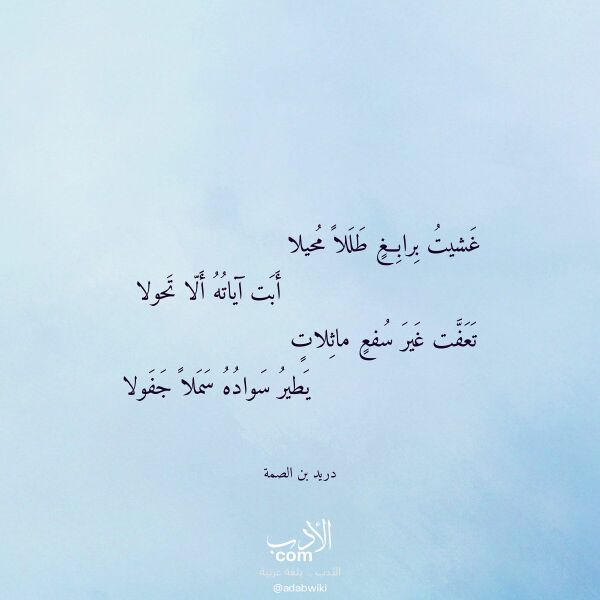 غَشيتُ بِرابِغٍ طَلَلاً مُحيلا
أَبَت آياتُهُ أَلّا تَحولا
تَعَفَّت غَيرَ سُفعٍ ماثِلاتٍ
يَطيرُ سَوادُهُ سَمَلاً جَفولا
دريد بن الصمة
الأدب
com
الأدب .. بلغة عربية
@adabwiki